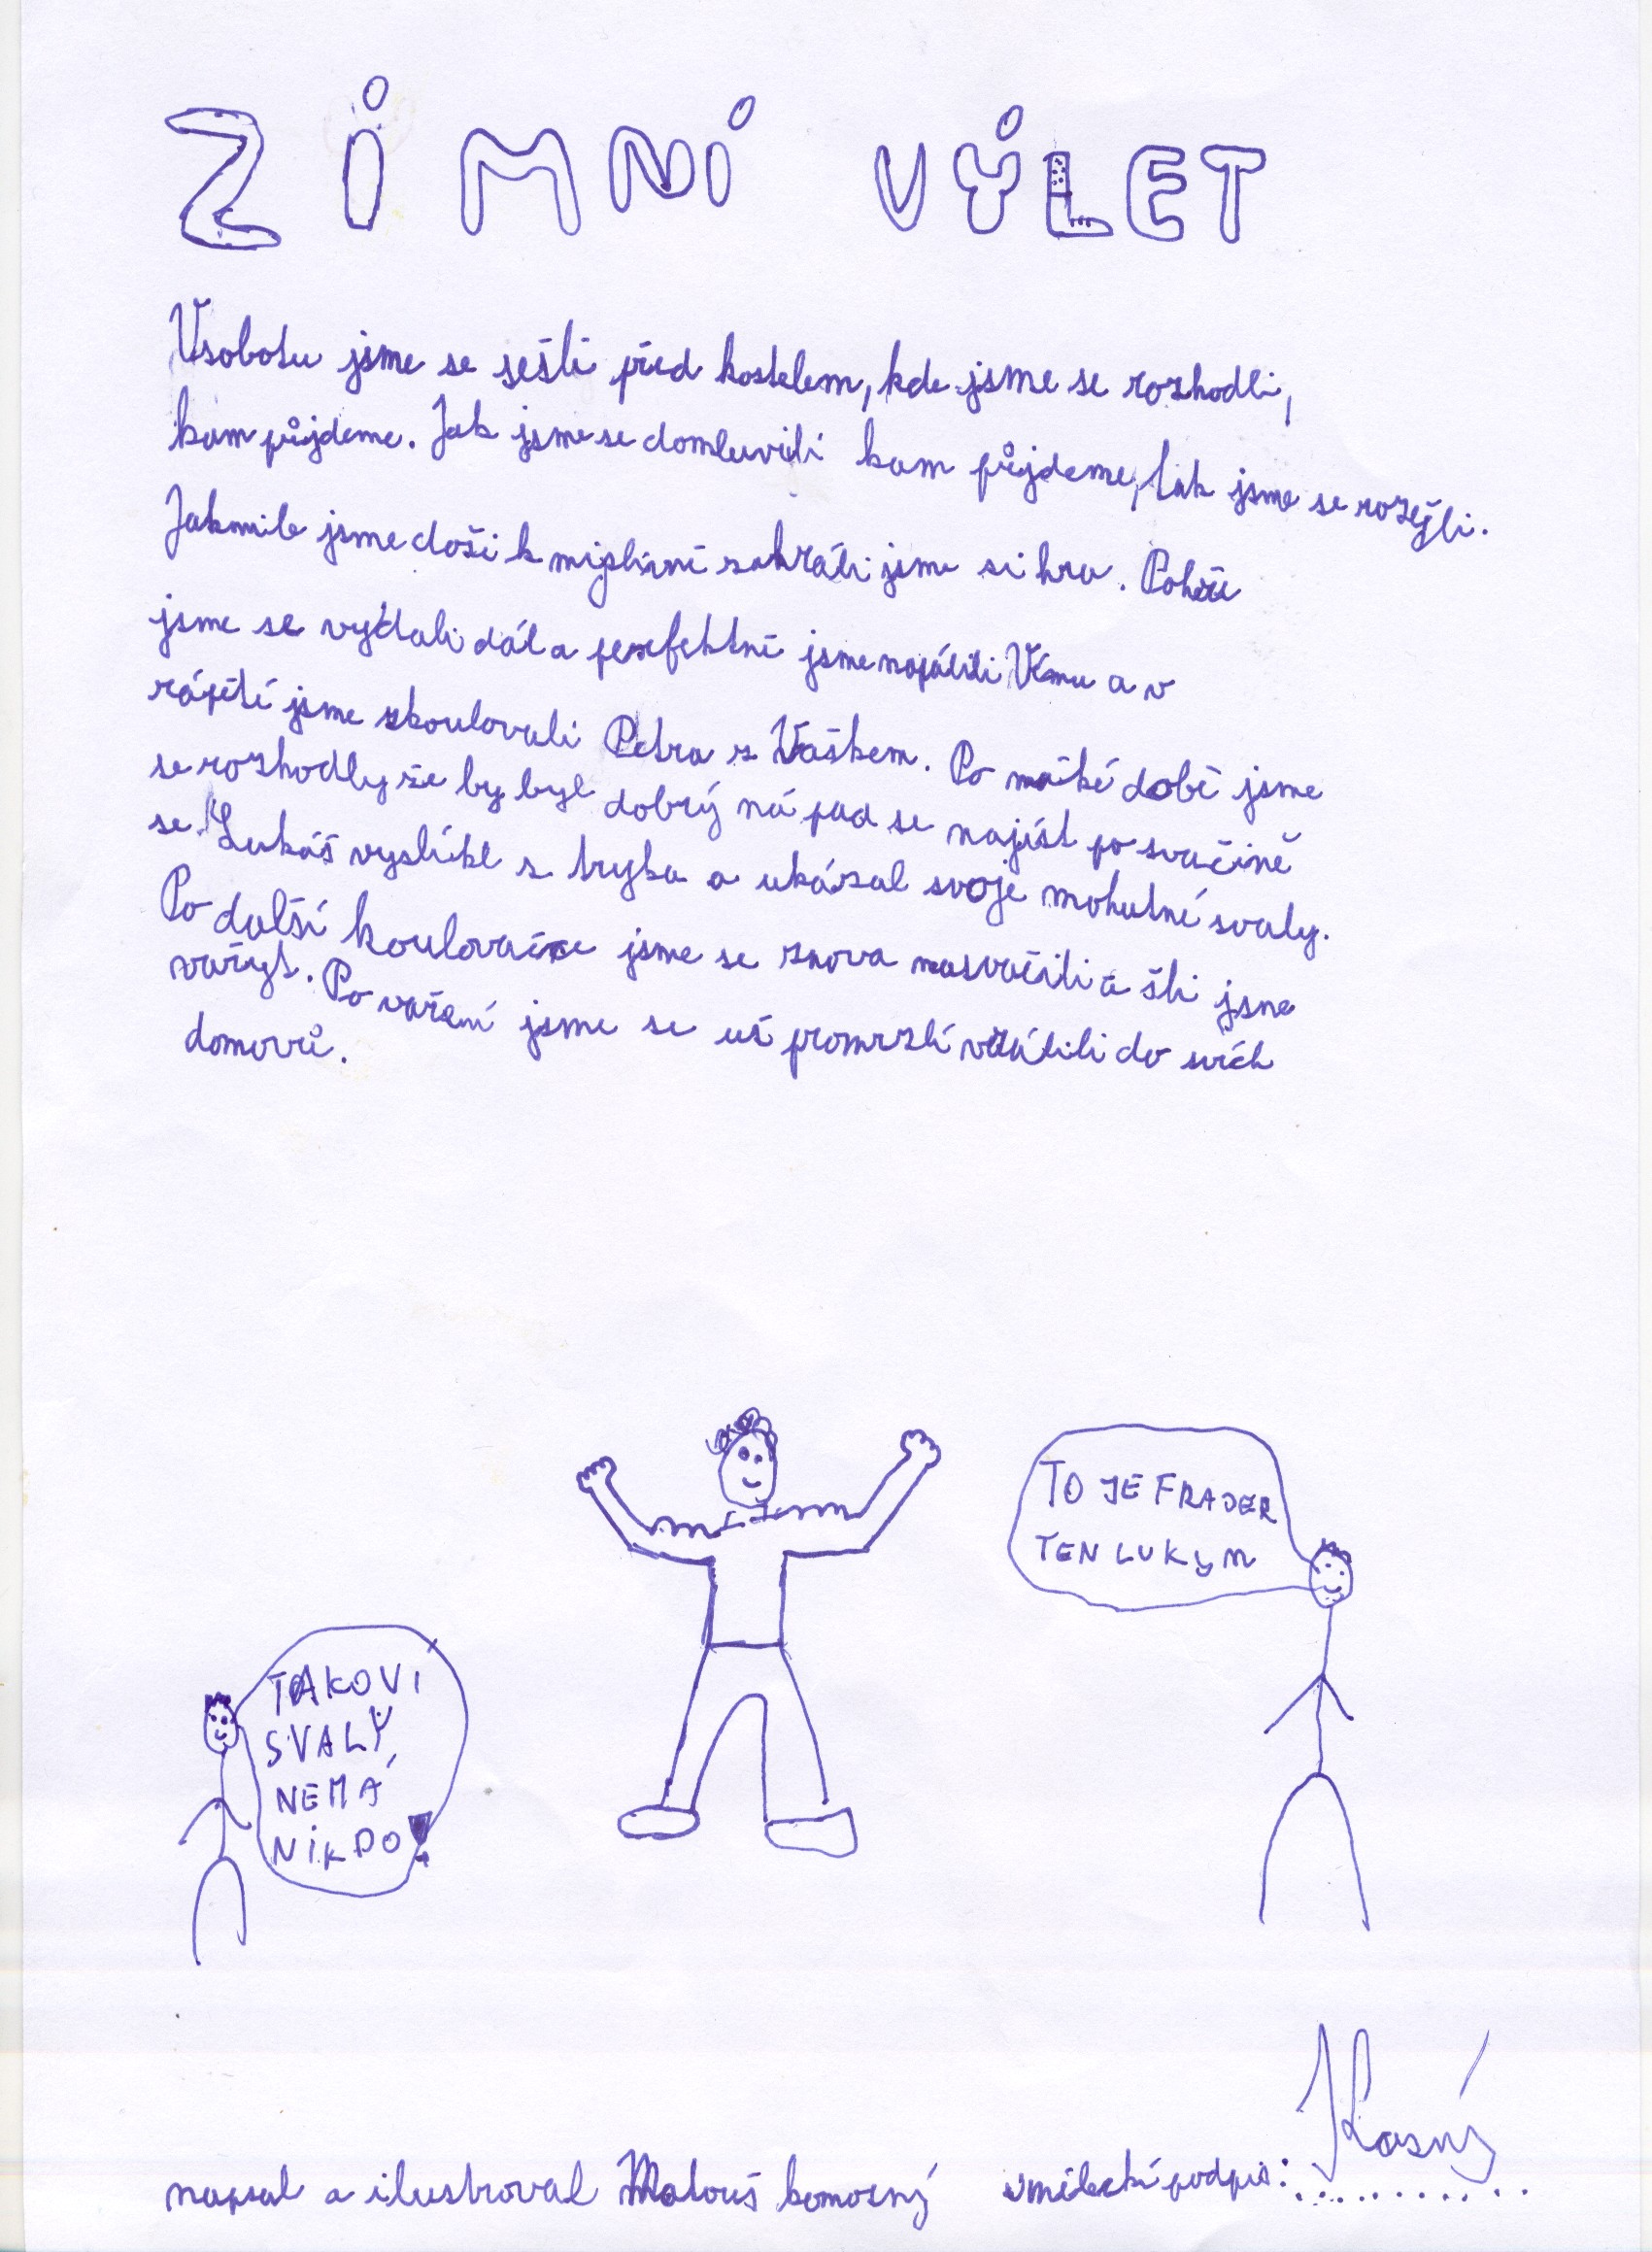 ZIMNÍ VÝLET
Vsobotu jsme se sešli před kostelem, kde jsme se rozhodli,
kam půjdeme. Jak jsme se domluvili kam půjdeme, tak jsme se rozešli.
Jakmile jsme doši k myslivně zahráli jsme si hru. Po hře
jsme se vydali dál a perfektně jsme napálili Vímu a v
zápětí jsme zkoulovali Petra z Vaškem. Po maké době jsme
se rozhodly že by byl dobrý ná pad se najíst po svačině
se Lukáš vyslíkl z tryka a ukázal svoje mohutné svaly.
Po další koulovačce jsme se znova nasvačili a šli jsme
vařyt. Po vaření jsme se uš promrzlí vrátili do svích
domovů.
TO JE FRAJER
TEN LUKYN
TAKOVI
SVALY
NEMÁ
NIKDO!
napsal a ilustroval Matouš komosný umělecký podpis: